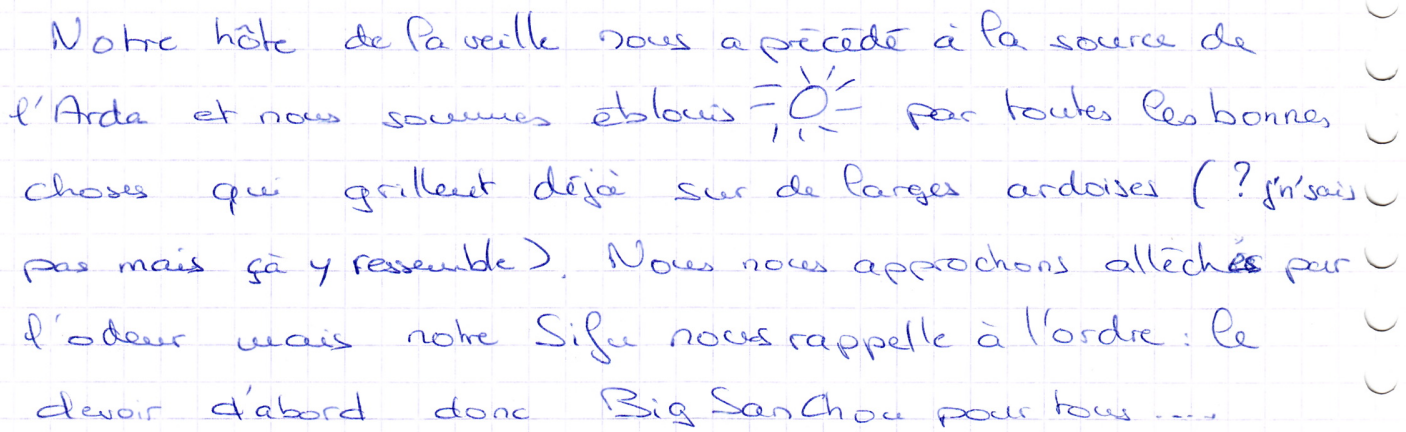 Notre hôte de la veille nous a précédé à la source de
l'Arda et nous sommes éblouis par toutes les bonnes
choses qui grillent déjà sur de larges ardoises (? j'n'sais
pas mais çà y ressemble). Nous nous approchons alléchés par
l'odeur mais notre Sifu nous rappelle à l'ordre : le
devoir d'abord donc Big San Chou pour tous ....